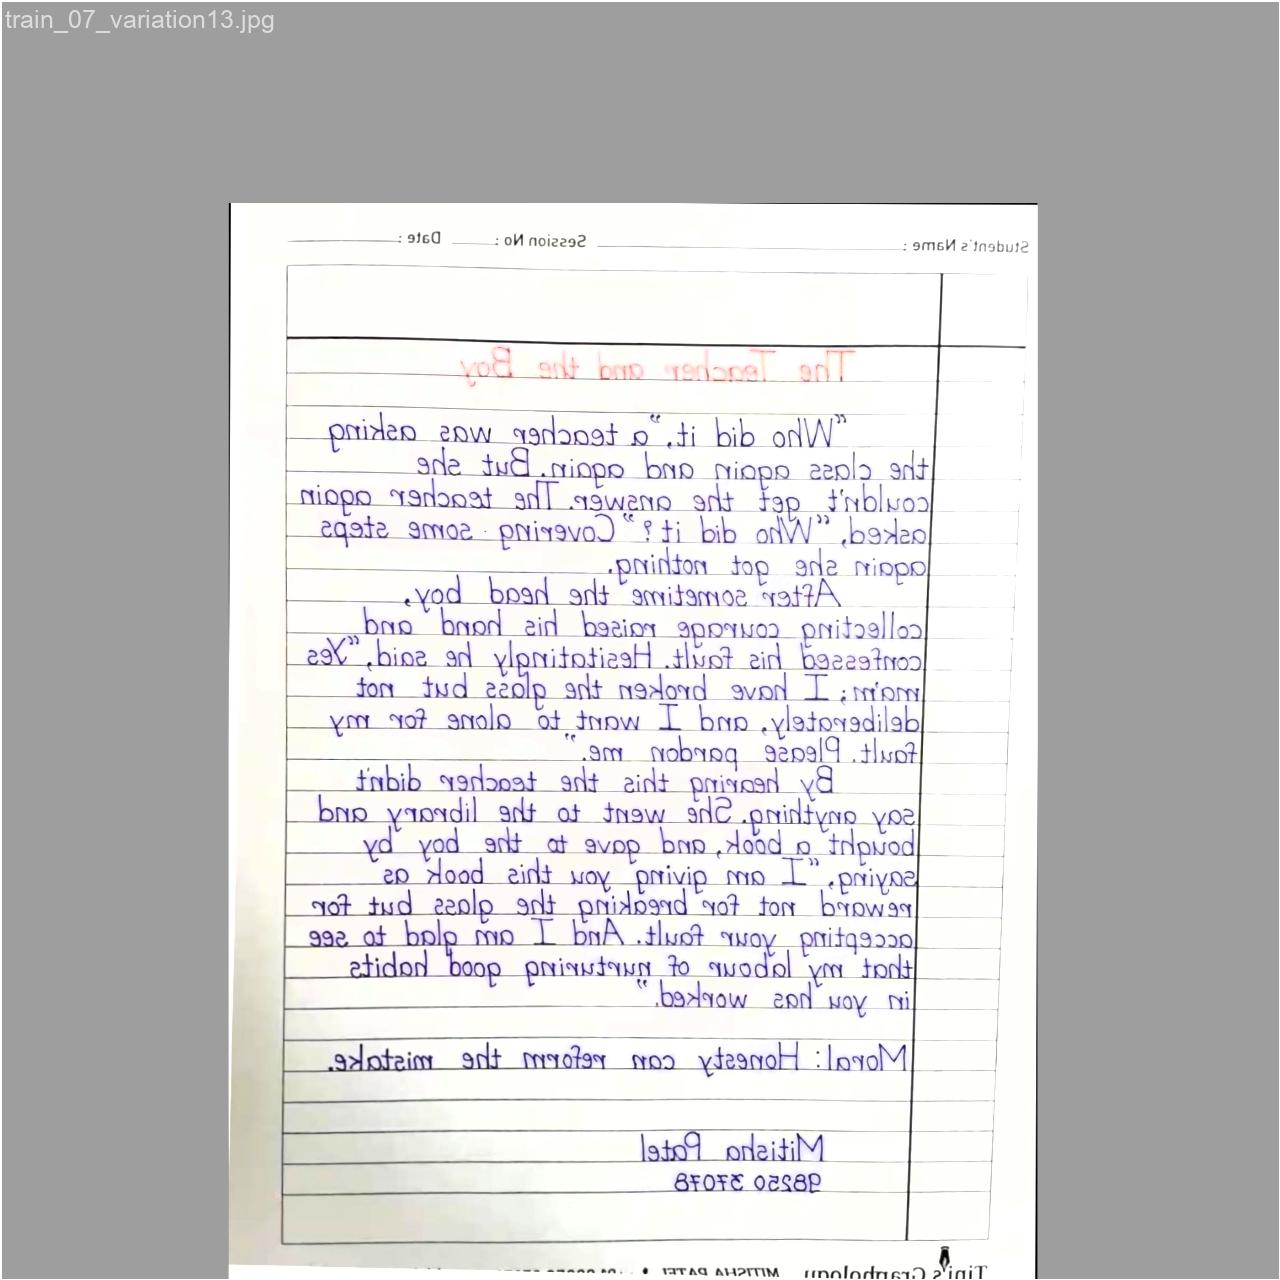 train_07_variation13.jpg
Student's Name : Session No : Date :
The Teacher and the Boy
"Who did it," a teacher was asking
the class again and again. But she
couldn't get the answer. The teacher again
asked, "Who did it?" Covering some steps
again she got nothing.
After sometime the head boy,
collecting courage raised his hand and
confessed his fault. Hesitatingly he said, "Yes
ma'm; I have broken the glass but not
deliberately, and I want to alone for my
fault. Please pardon me."
By hearing this the teacher didn't
say anything. She went to the library and
bought a book, and gave to the boy by
saying, "I am giving you this book as
reward not for breaking the glass but for
accepting your fault. And I am glad to see
that my labour of nurturing good habits
in you has worked."
Moral: Honesty can reform the mistake.
Mitisha Patel
98250 37078
Tini's Graphology MITISHA PATEL